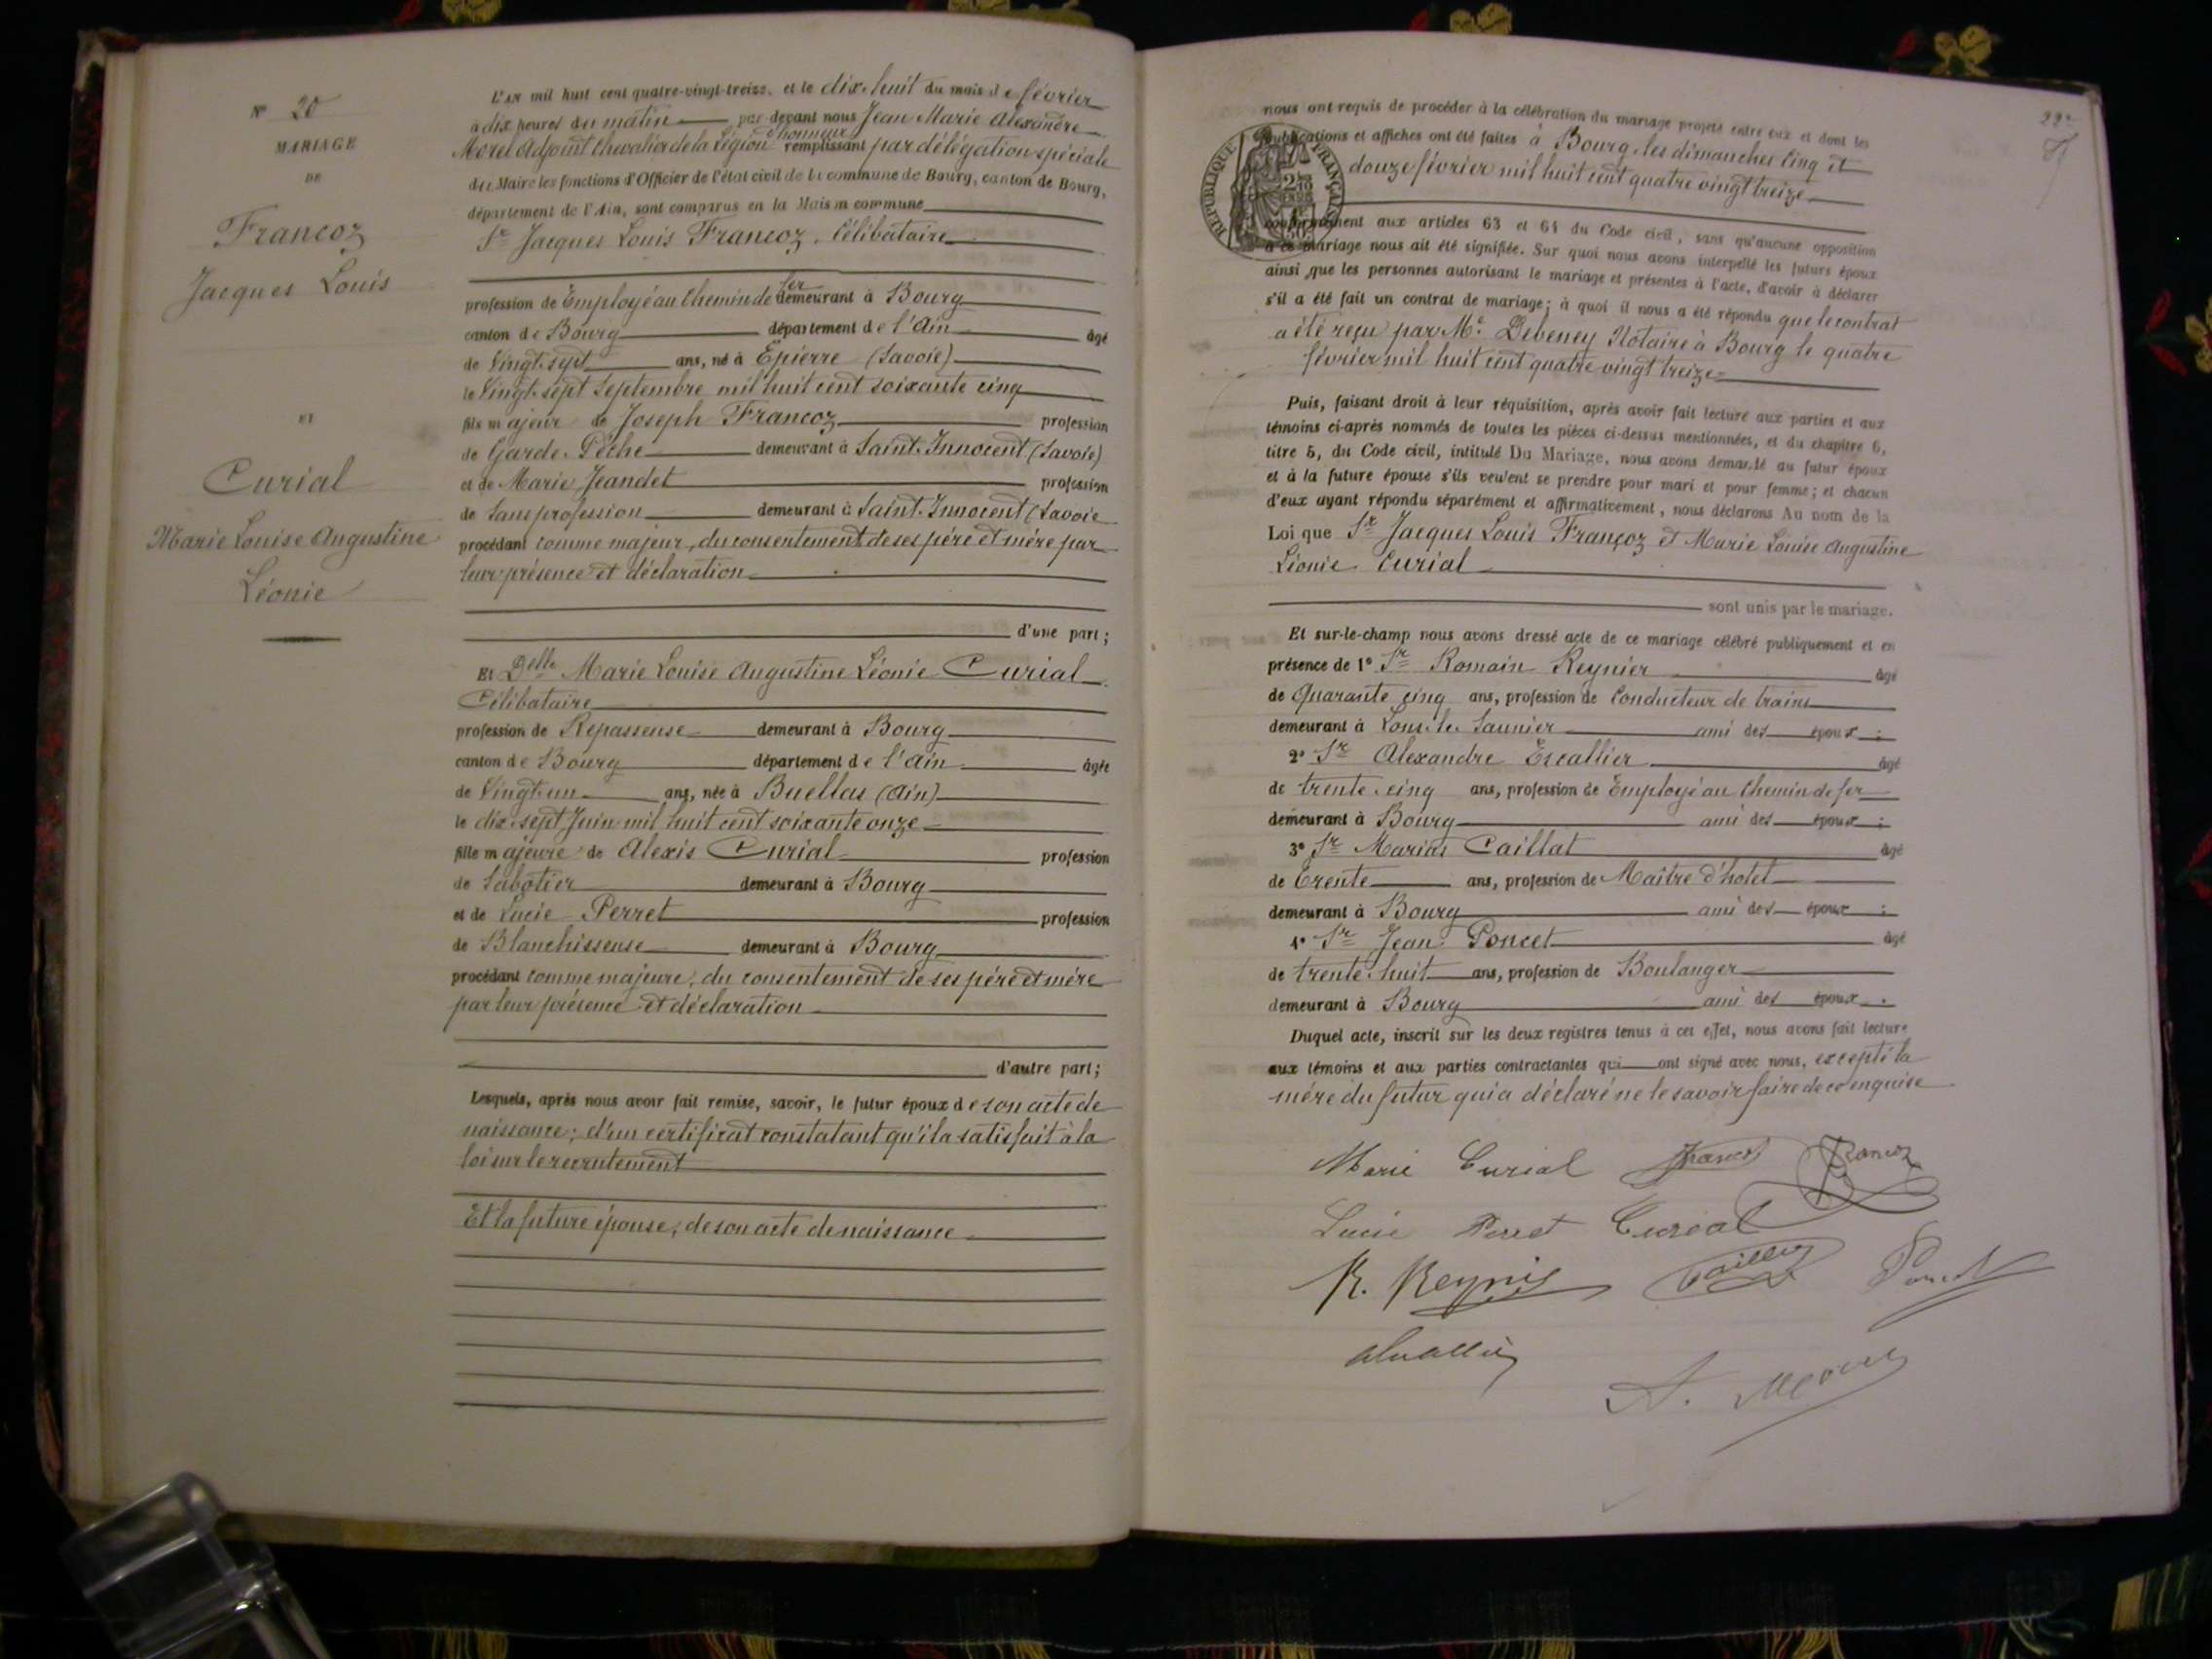 N° 20
MARIAGE
DE
Francoz
Jacques Louis
ET
Curial
Marie Louise Augustine
Léonie
L'AN mil huit cent quatre-vingt-treize, et le dix-huit du mois de février
à dix heures du matin par-devant nous Jean Marie Alexandre
Morel Adjoint Chevalier de la Légion d'honneur remplissant par délégation spéciale
du Maire les fonctions d'Officier de l'état civil de la commune de Bourg, canton de Bourg,
département de l'Ain, sont comparus en la Maison commune
Sr Jacques Louis Francoz, Célibataire
profession de Employé au Chemin de fer demeurant à Bourg
canton de Bourg département de l'Ain âgé
de Vingt-sept ans, né à Épierre (Savoie)
le Vingt-sept Septembre mil huit cent soixante cinq
fils majeur de Joseph Francoz profession
de Garde-Pêche demeurant à Saint-Innocent (Savoie)
et de Marie Jeandet profession
de Sans profession demeurant à Saint-Innocent (Savoie
procédant comme majeur, du consentement de ses père et mère par
leur présence et déclaration
d'une part;
Et Delle Marie Louise Augustine Léonie Curial
Célibataire
profession de Repasseuse demeurant à Bourg
canton de Bourg département de l'Ain âgée
de Vingt-un ans, née à Buellas (Ain)
le dix-sept Juin mil huit cent soixante onze
fille majeure de Alexis Curial profession
de Sabotier demeurant à Bourg
et de Lucie Perret profession
de Blanchisseuse demeurant à Bourg
procédant comme majeure, du consentement de ses père et mère
par leur présence et déclaration
d'autre part;
Lesquels, après nous avoir fait remise, savoir, le futur époux de son acte de
naissance; d'un certificat constatant qu'il a satisfait à la
loi sur le recrutement
Et la future épouse, de son acte de naissance
22
nous ont requis de procéder à la célébration du mariage projeté entre eux et dont les
publications et affiches ont été faites à Bourg, les dimanches Cinq et
douze février mil huit cent quatre vingt treize
RÉPUBLIQUE FRANÇAISE
conformément aux articles 63 et 64 du Code civil, sans qu'aucune opposition
à ce mariage nous ait été signifiée. Sur quoi nous avons interpellé les futurs époux
ainsi que les personnes autorisant le mariage et présentes à l'acte, d'avoir à déclarer
s'il a été fait un contrat de mariage; à quoi il nous a été répondu que le contrat
a été reçu par Me Debeney Notaire à Bourg le quatre
février mil huit cent quatre vingt treize
Puis, faisant droit à leur réquisition, après avoir fait lecture aux parties et aux
témoins ci-après nommés de toutes les pièces ci-dessus mentionnées, et du chapitre 6,
titre 5, du Code civil, intitulé Du Mariage, nous avons demandé au futur époux
et à la future épouse s'ils veulent se prendre pour mari et pour femme; et chacun
d'eux ayant répondu séparément et affirmativement, nous déclarons Au nom de la
Loi que Sr Jacques Louis Françoz et Marie Louise Augustine
Léonie Curial
sont unis par le mariage.
Et sur-le-champ nous avons dressé acte de ce mariage célébré publiquement et en
présence de 1° Sr Romain Reynier âgé
de Quarante cinq ans, profession de Conducteur de trains
demeurant à Lons-le-Saunier ami des époux;
2° Sr Alexandre Escallier âgé
de trente-cinq ans, profession de Employé au Chemin de fer
demeurant à Bourg ami des époux;
3° Sr Marius Caillat âgé
de Trente ans, profession de Maître d'hotel
demeurant à Bourg ami des époux;
4° Sr Jean Poncet âgé
de trente-huit ans, profession de Boulanger
demeurant à Bourg ami des époux.
Duquel acte, inscrit sur les deux registres tenus à cet effet, nous avons fait lecture
aux témoins et aux parties contractantes qui ont signé avec nous, excepté la
mère du futur qui a déclaré ne le savoir faire de ce enquise
Marie Curial Francoz Francoz
Lucie Perret Curial
R. Reynier Poncet
A. Morel